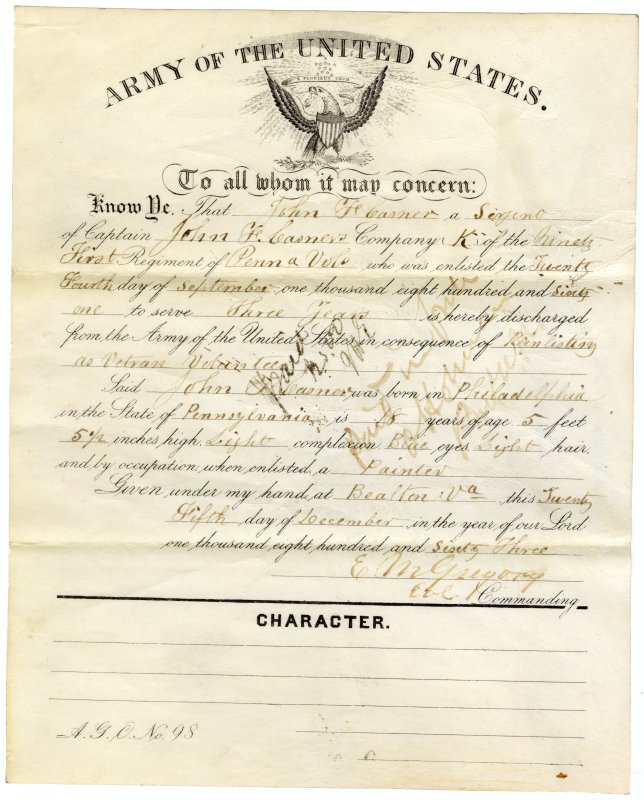 ARMY OF THE UNITED STATES.
E PLURIBUS UNUM
To all whom it may concern:
Know Ye, That John F Casner a Sergent
of Captain John F. Casners Company (K) of the Ninety
First Regiment of Penn a Vols who was enlisted the Twenty
Fourth day of September one thousand eight hundred and Sixty
one to serve Three Years is hereby discharged
from the Army of the United States in consequence of Reinlisting
as Vetran Volunteer
Said John F Casner was born in Philadelphia
in the State of Pennsylvania is 18 years of age 5 feet
5 1/2 inches high Light complexion Blue eyes Light hair
and by occupation when enlisted a Painter
Given under my hand at Bealton Va this Twenty
Fifth day of December in the year of our Lord
one thousand eight hundred and Sixty Three
E M Gregory
Commanding
Paid
CHARACTER.
A.G.O. No. 98